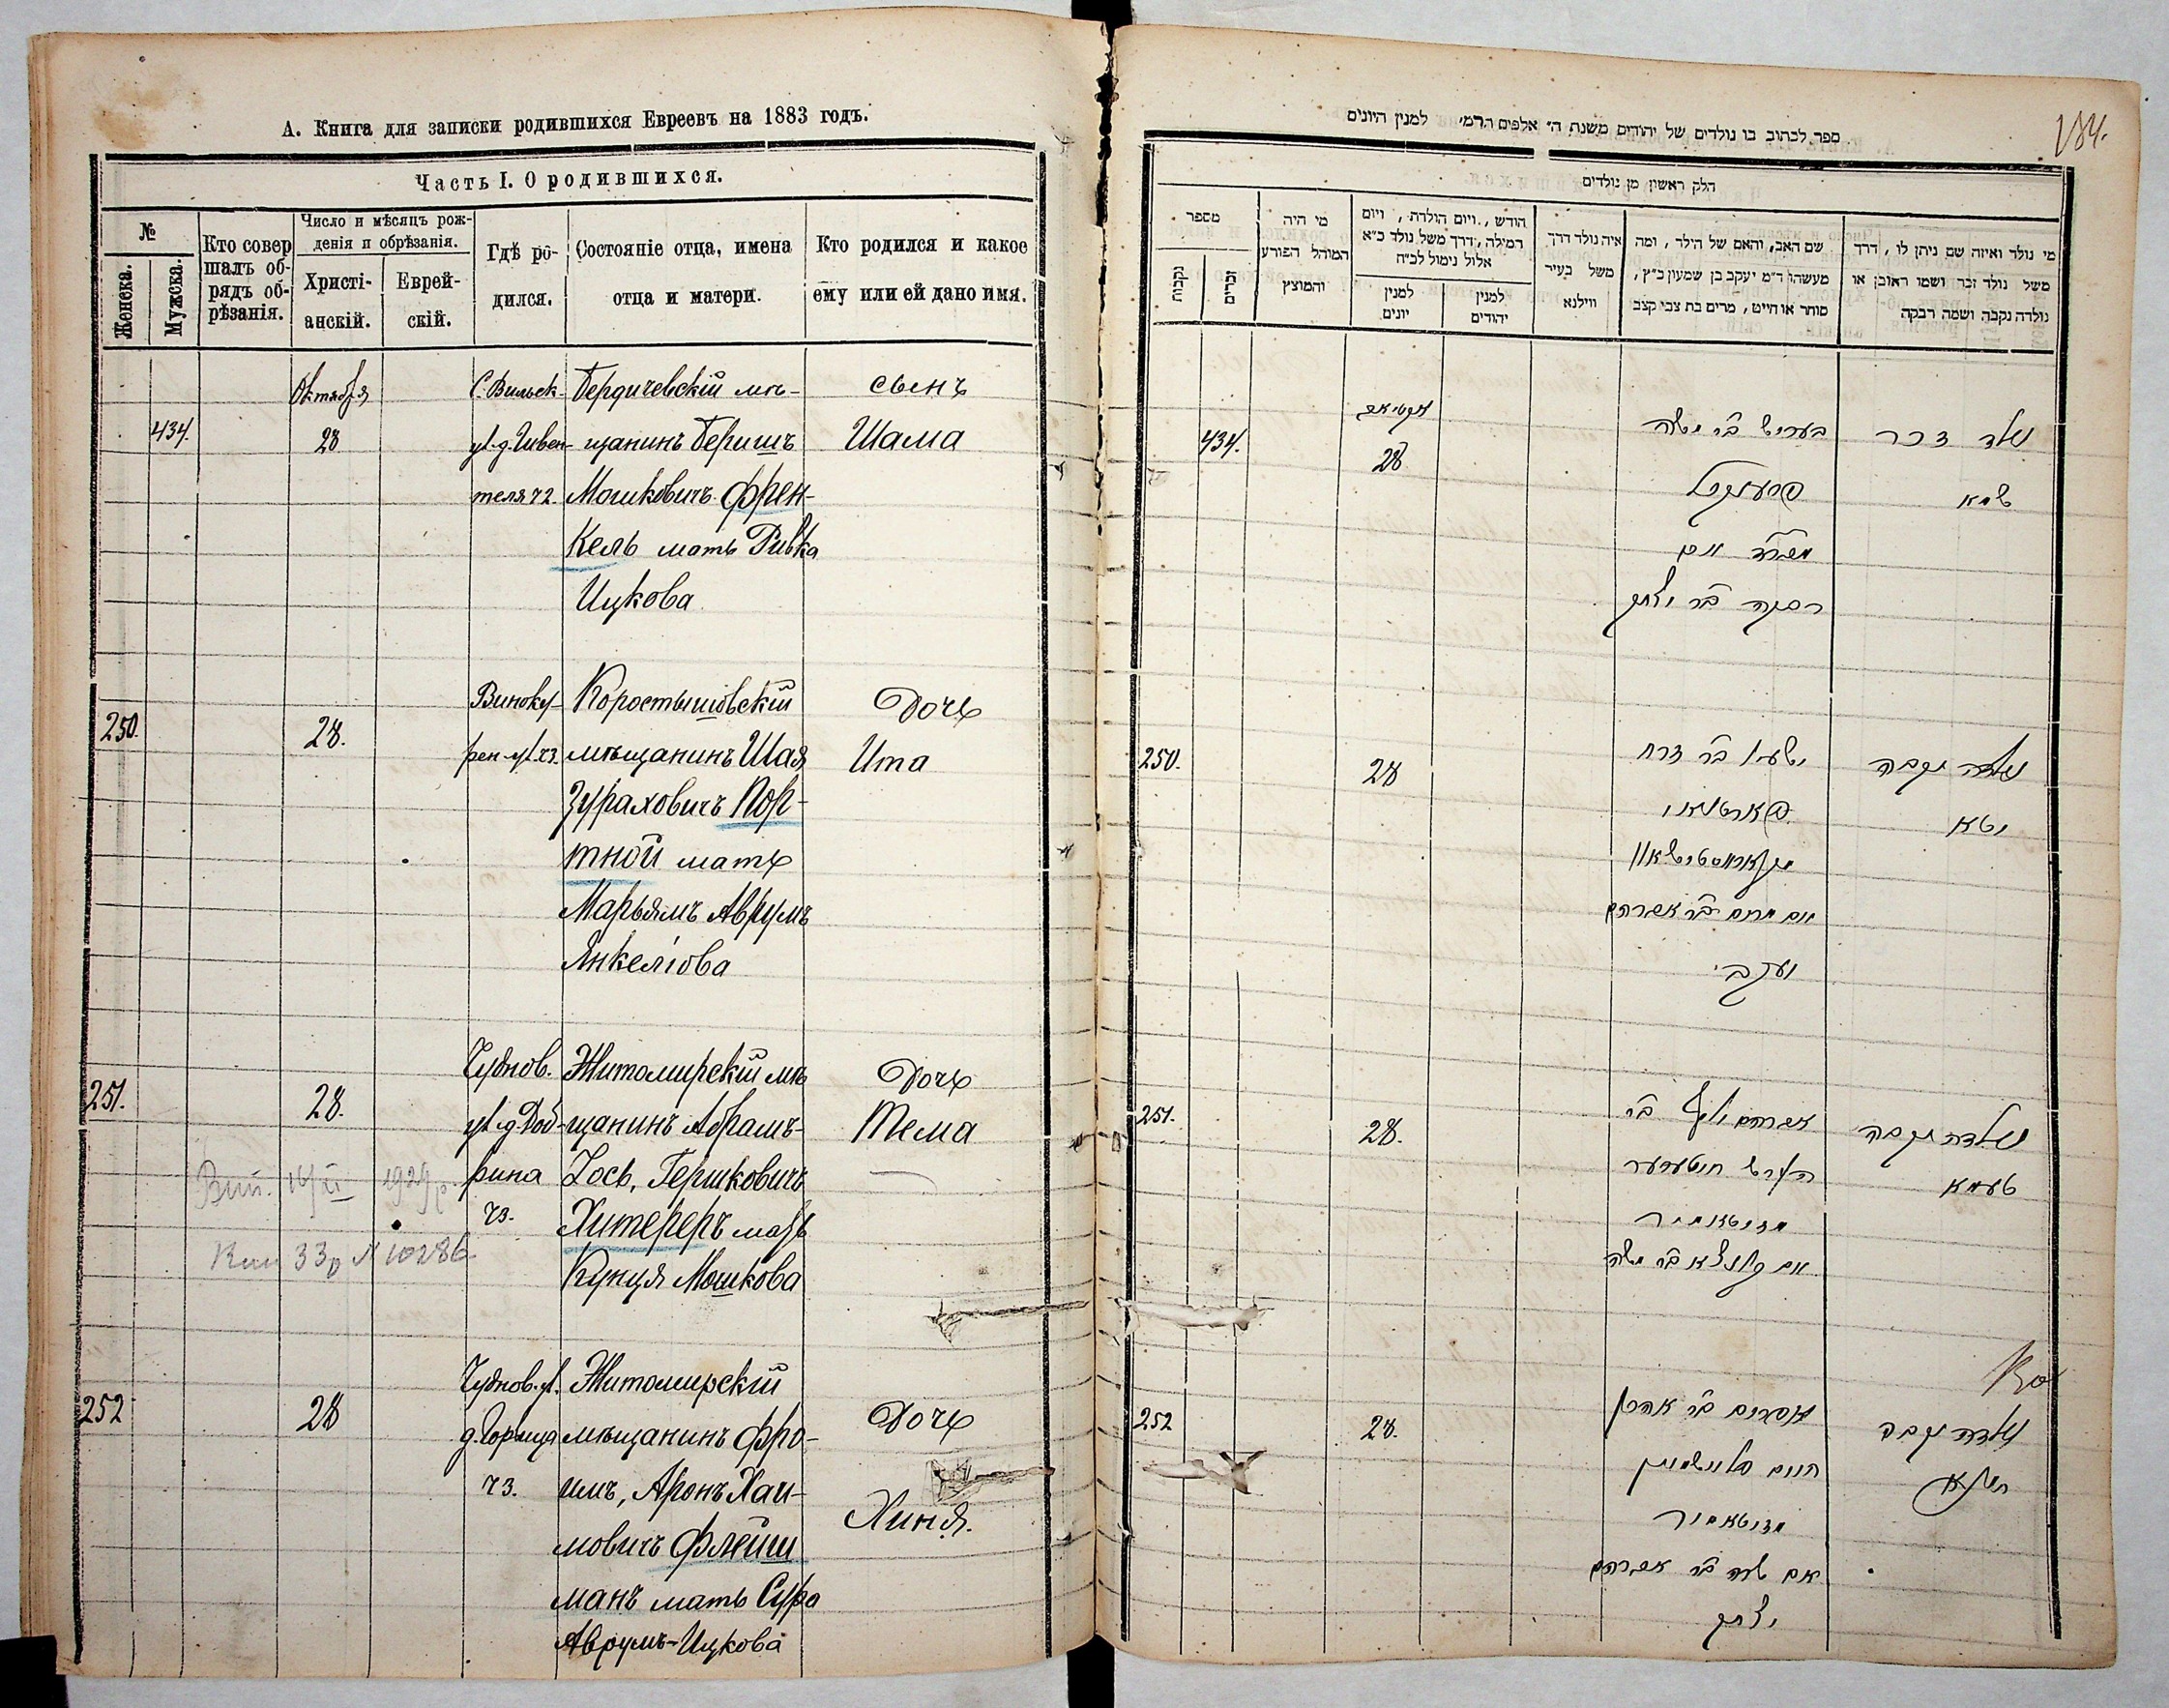 А. Книга для записки родившихся Евреевъ на 1883 годъ.
Часть I. О родившихся.
№
Женска.
Мужска.
Кто совершалъ обрядъ обрѣзанія.
Число и мѣсяцъ рожденія и обрѣзанія.
Христіанскій.
Еврейскій.
Гдѣ родился.
Состояніе отца, имена отца и матери.
Кто родился и какое ему или ей дано имя.
434.
Октября
28
С. Вильск.
ул. д.
теля ч2.
Бердичевскій мѣ-
щанинъ Беришъ
Мошковичъ Френ-
кель мать Ривка
Ицкова
сынъ
Шама
250.
28.
Виноку-
рен. ул. ч3.
Коростышовскій
мѣщанинъ Шая
Зураховичъ Пор-
тной мать
Марьямъ Аврумъ
Янкеліова
Дочь
Ита
251.
28.
Чуднов.
ул. д. Доб-
рина
ч3.
Житомирскій мѣ
щанинъ Абрамъ-
Зось, Гершковичъ
Хитереръ мать
Кунця Мошкова
Дочь
Тема
16/XI 1929 р.
33 р № 10286
252
28
Чуднов. ул.
д. Горница
ч3.
Житомирскій
мѣщанинъ Фро-
имъ, Аронъ Хаи-
мовичъ Флейш
манъ мать Сура
Аврумъ-Ицкова
Дочь
Хиня.
184.
ספר לכתוב בו נולדים של יהודים משנת ה׳ אלפים הרמ׳ למנין היונים
חלק ראשון מן נולדים
מספר
נקבות
זכרים
מי היה
המוהל הפורע
והמוצץ
חודש, ויום הולדת, ויום
המילה, דרך משל נולד כ״א
אלול נימול לכ״ח
למנין
יונים
למנין
יהודים
איה נולד דרך
משל בעיר
ווילנא
שם האב, והאם של הילד, ומה
מעשהו ד״מ יעקב בן שמעון כ״ץ,
סוחר או חייט, מרים בת צבי קצב
מי נולד ואיזה שם ניתן לו, דרך
משל נולד זכר ושמו ראובן או
נולדה נקבה ושמה רבקה
434.
28
בעריש ב״ר משה
פרענקיל
רבקה ב״ר יצחק
נולד זכר
שמא
250.
28
ישעי׳ ב״ר זרח
פארטנאי
מקאראסטישאוו
אם מרים ב״ר אברהם
יעקב
נולדה נקבה
יטא
251.
28.
הערש חיטערער
מזיטאמיר
נולדה נקבה
טעמא
252
28.
אפרים ב״ר אהרן
חיים פליישמאן
מזיטאמיר
אם שרה ב״ר אברהם
יצחק
נולדה נקבה